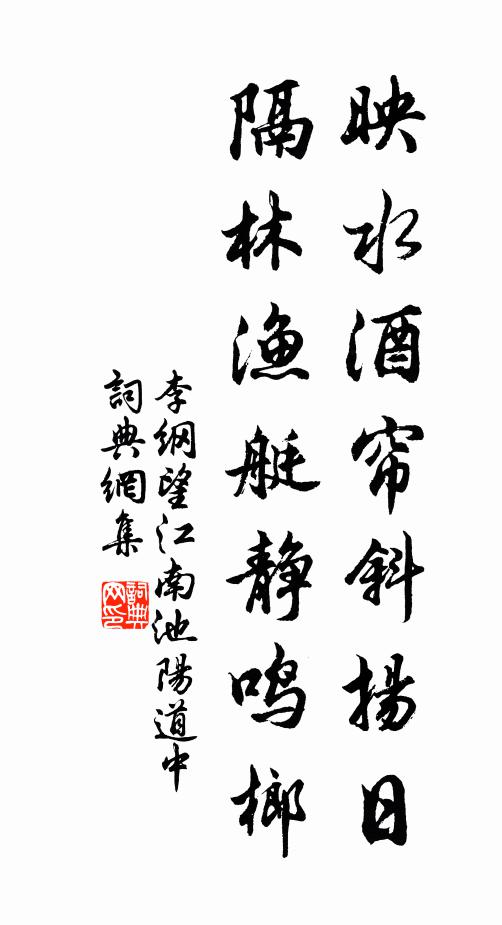 映水酒帘斜揚日
隔林漁艇静鳴榔
李綱望江南池陽道中
詞典網集
詞典网印